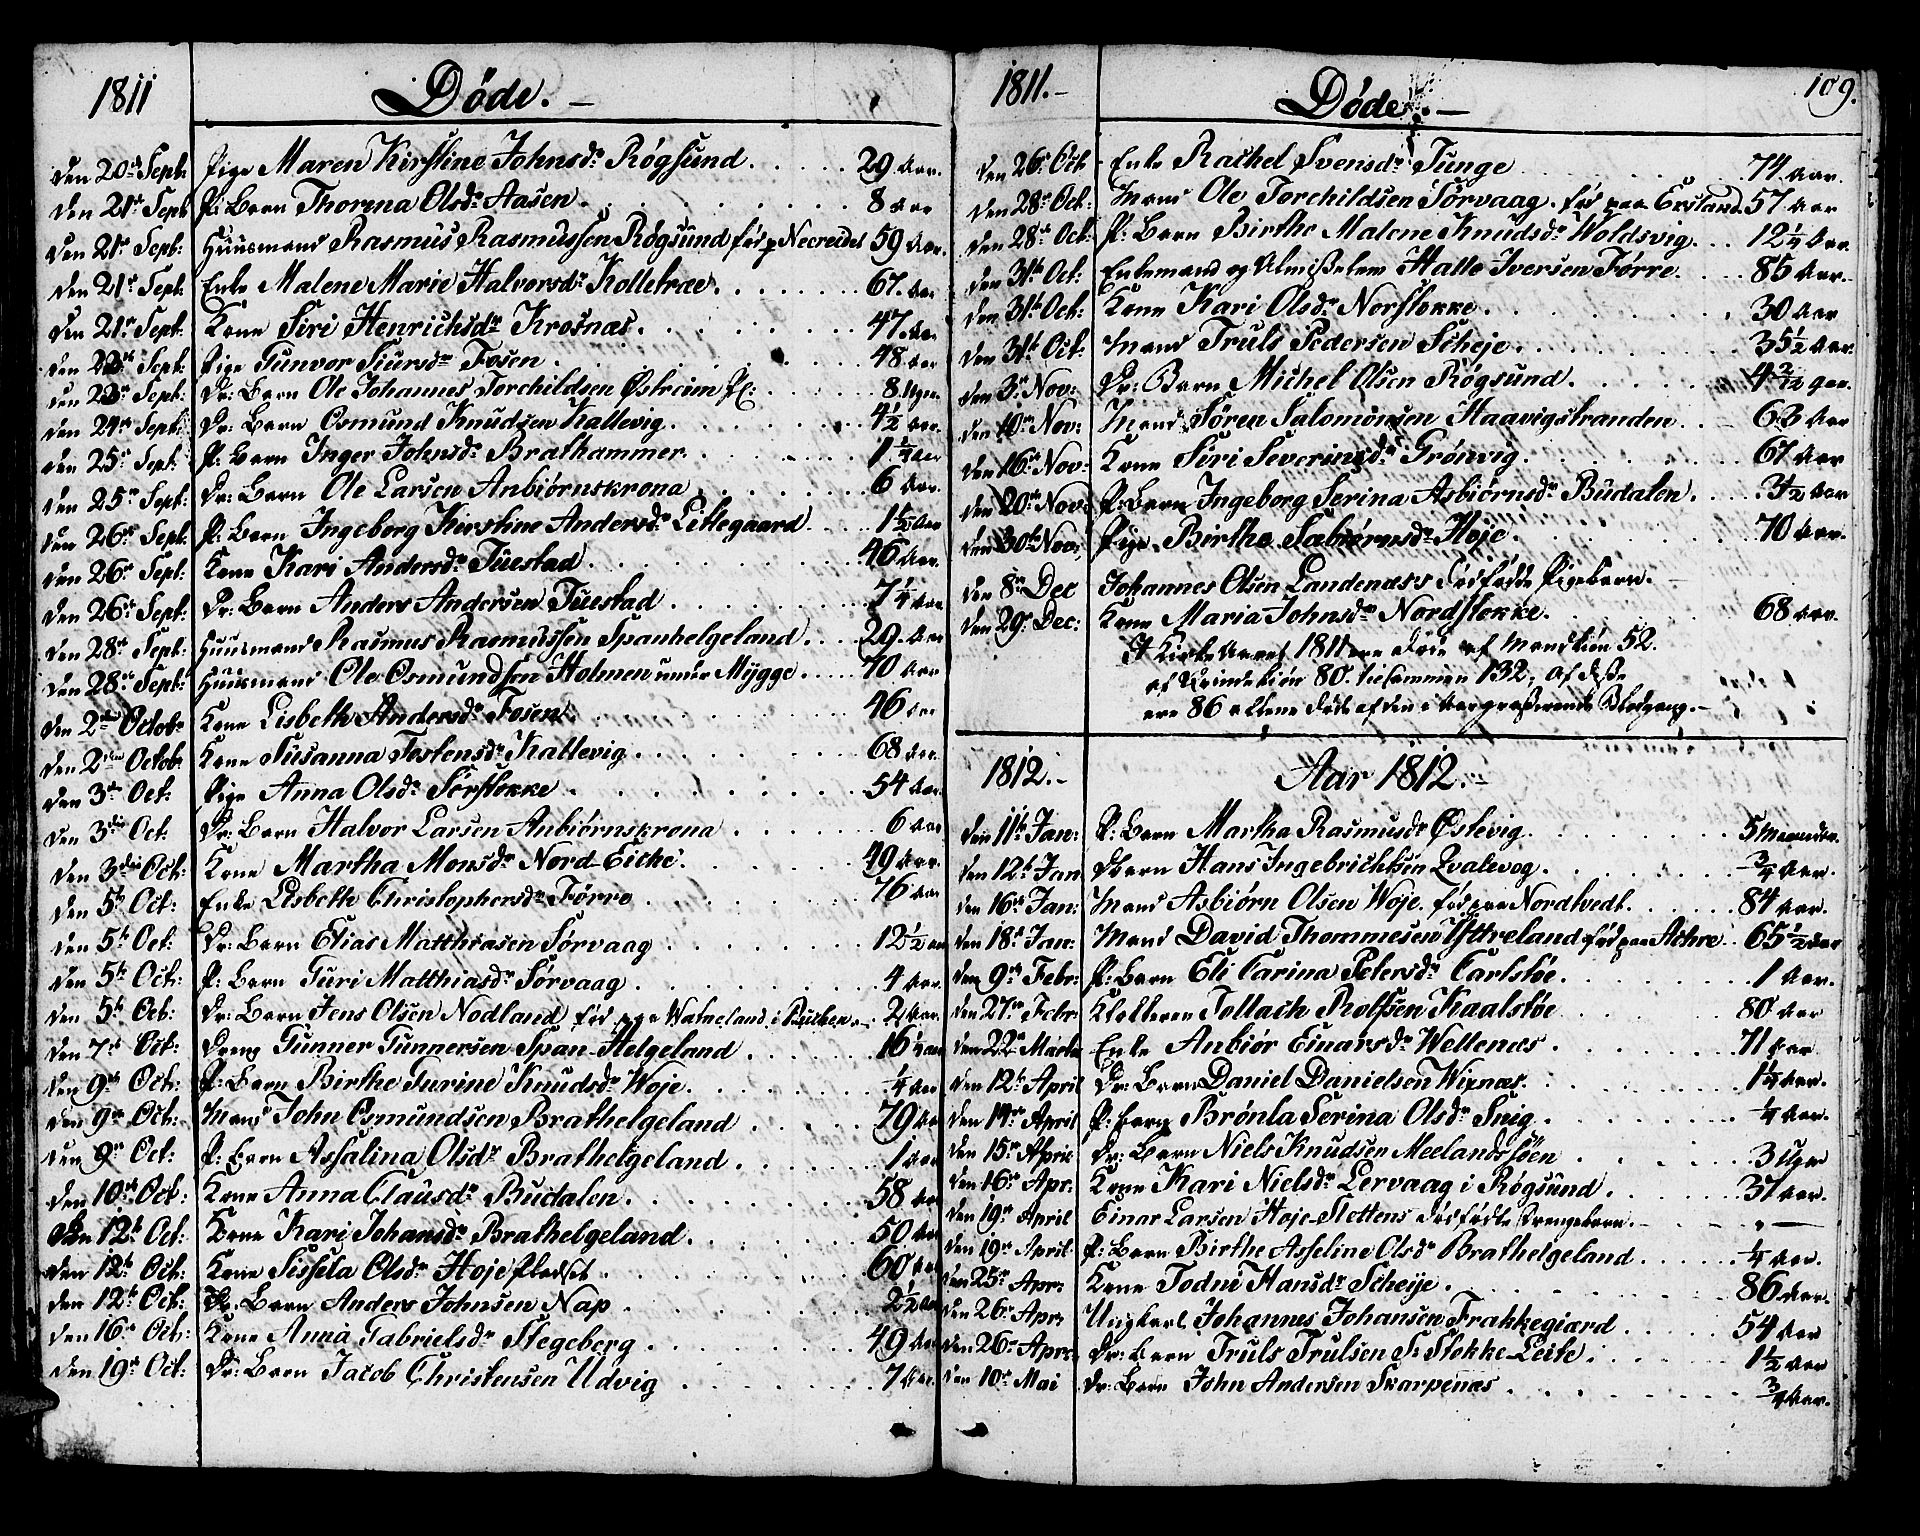 1811
Døde. –
Den 20de Sept. Pige Maren Kirstine Johnsdr Røgsund 29 Aar.
Den 21st Sept P: Barn Thorina Olsdr Aasen. 8 Aar
Den 21st Sept: Huusmand Rasmus Rasmussen Røgsund fød p Necreidet 59 Aar.
Den 21st Sept. Enke Malene Marie Halvorsdr Kolletræe. 67. Aar
Den 21st Sept: Kone Siri Henrichsdr Krosnæs. 47. Aar
Den 23de Sept. Pige Gunvor Siursdr Fosen. 48 Aar
Den 23de Sept: Dr: Barn Ole Johannes Torchildsen Østreim Pl: 8 Uger.
Den 24de Sept: Dr: Barn Osmund Knudsen Kallevig. 4½ Aar.
Den 25de Sept: P: Barn Inger Johnsdr Brathammer. 1¼ Aar
Den 25de Sept: Dr: Barn Ole Larsen Anbiørnskrona 6 Aar.
Den 26de Sept. P: Barn Ingeborg Kirstine Andersdr Litlegaard 1½ Aar
Den 26de Sept: Kone Kari Andersdr Tuestad 46 Aar.
Den 26de Sept: Dr: Barn Anders Andersen Tuestad 7¼ Aar
Den 28de Sept: Huusmand Rasmus Rasmussen Spanhelgeland 29. Aar
Den 28de Sept: Huusmand Ole Osmundsen Holmen under Mygge 70 Aar
Den 2den Octobr Kone Lisbeth Andersdr Fosen. 46 Aar
Den 2den Octobr Kone Susanna Tostensdr Kallevig 68 Aar.
Den 3die Oct: Pige Anna Olsdr Sørstokke 54 Aar.
Den 3die Oct. Dr: Barn Halvor Larsen Anbiørnskrona 6 Aar
Den 3die Oct: Kone Martha Monsdr Nord-Eicke. 49 Aar.
Den 5te Oct: Enke Lisbeth Christophersdr Førre 76 Aar
Den 5te Oct: Dr: Barn Elias Matthiasen Sørvaag 12½ Aar
Den 5te Oct: P: Barn Guri Matthiasdr Sørvaag 4 Aar.
Den 5te Oct: Dr: Barn Jens Olsen Nodland fød paa Watneland i Bucken 2 Aar.
Den 7de Oct: Dreng Gunner Gunnersen Span-Helgeland 16½ Aar
Den 9de Oct: P: Barn Birthe Gurine Knudsdr Woje. ¼ Aar
Den 9de Oct: Mand John Osmundsen Brathelgeland 79 Aar
Den 9de Oct: P: Barn Assalina Olsdr Brathelgeland 1 Aar
Den 10de Oct: Kone Anna Clausdr Budalen 58 Aar
Den 12te Oct: Kone Kari Johansdr Brathelgeland 50 Aar
Den 12te Oct: Kone Sissela Olsdr Høje Pladset 60 Aar
Den 12te Oct: Dr: Barn Anders Johnsen Nap 2½ Aar
Den 16de Oct: Kone Anna Gabrielsdr Stegeberg 49 Aar
Den 19de Oct: Dr: Barn Jacob Christensen Udvig 7 Aar.
1811. –
Døde. –
109.
Den 26de Oct Enke Rachel Svensdr Tunge 74 Aar.
Den 28de Oct: Mand Ole Torchildsen Sørvaag. fød paa Ersland. 57 Aar
Den 28de Oct: P: Barn Birthe Malene Knudsdr Woldsvig 12¼ Aar
Den 31te Oct: Enkemand og Almisselem Halle Iversen Førre. 85 Aar.
Den 31te Oct: Kone Kari Olsdr Norstokke 30 Aar
Den 31te Oct: Mand Truls Pedersen Scheje. 35½ Aar.
Den 3de Nov: Dr: Barn Michel Olsen Røgsund. Aar.
Den 10de Nov: Mand Søren Salomonsen Haavigstranden 63 Aar
Den 16de Nov: Kone Siri Severinsdr Grønvig. 67 Aar
Den 20de Nov: P: Barn Ingeborg Serina Asbiørnsdr Budalen. 3½ Aar
Den 30te Nov: Pige Birthe Sæbiørnsdr Høje. 70 Aar.
Den 8de Dec Johannes Olsen Landenæss Dødfødde Pigebarn. –
Den 29de Dec: Kone Maria Johnsdr Nordstokke. 68 Aar.
I Kirke Aaret 1811 ere døde af Mandkiøn 52.
af Qvindekiøn 80. tilsammen 132; af disse
ere 86 allene døde af den i Aar grasserende Blodgang. –
1812. –
Aar 1812. –
Den 11te Jan: P: Barn Martha Rasmusdr Østevig 5 Maaneder.
Den 12te Jan Dr: Barn Hans Ingebrichtsen Qvalevog. ¾ Aar.
Den 16de Jan: Mand Asbiørn Olsen Woje. fød paa Nordtvedt. 84 Aar.
Den 18de Jan: Mand David Thommesen Yttreland fød paa Achre 65½ Aar
Den 9de Febr: P: Barn Eli Carina Petersdr Carlstøe. 1 Aar.
Den 27de Febr: Klokkeren Tollach Rolfsen Kaalstøe 80 Aar
Den 22de Martii Enke Anbiør Einarsdr Wellenæs 71 Aar
Den 12te April Dr: Barn Daniel Danielsen Wixnæs. 1¼ Aar.
Den 14de April P: Barn Brønla Serina Olsdr Snig ¼ Aar.
Den 15de April Dr: Barn Niels Knudsen Meelandssøen 3 Uger
Den 16de Apr: Kone Kari Nielsdr Lervaag i Røgsund. 37 Aar.
Den 19de April Einar Larsen Høje-Slottens dødfødte Drengebarn. – „ –
Den 19de April P: Barn Birthe Asseline Olsdr Brathelgeland ¼ Aar.
Den 25de Apr: Kone Todni Hansdr Scheije 86 Aar.
Den 26de Apr: Ungkarl Johannes Johansen Frakkegiærd 54 Aar
Den 26de Apr: Dr: Barn Truls Trulsen S. Stokke-Leite. 1½ Aar
Den 10de Mai Dr: Barn John Andersen Skarpenæs ¾ Aar.